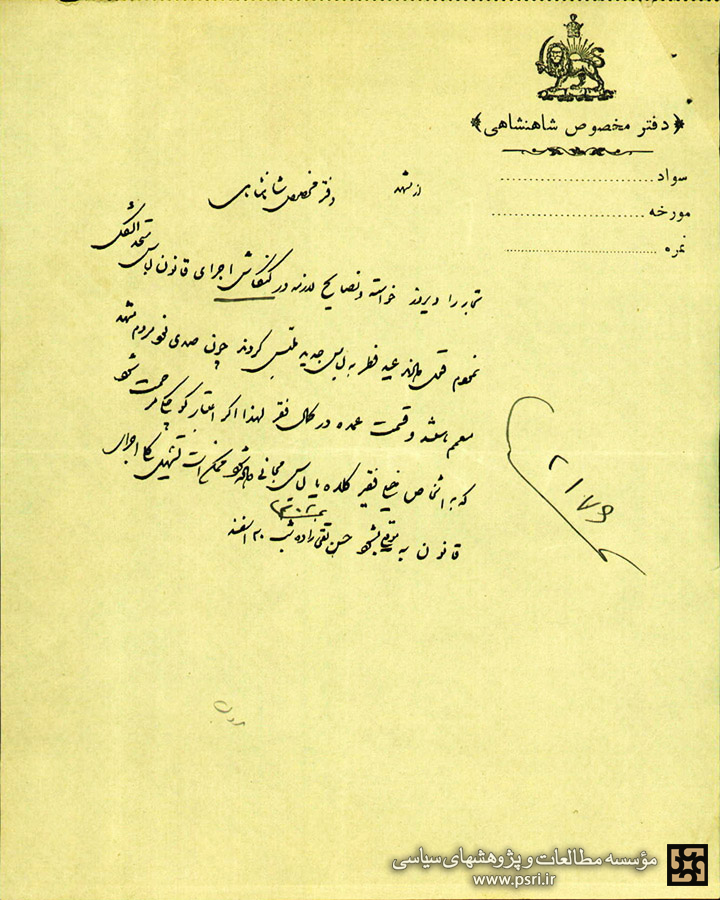 دفتر مخصوص شاهنشاهی
سواد
مورخه
نمره
از مشهد
دفتر مخصوص شاهنشاهی
تجار را دیروز خواسته و نصایح لازمه در اجرای قانون لباس متحدالشکل
نمودم قبل از عید فطر به لباس جدید ملبس گردند چون صدی نود مردم مشهد
معمم هستند و قسمت عمده در کمال فقر لهذا اگر اعتبار کوچکی مرحمت شود
که به اشخاص خیلی فقیر کلاه یا لباس مجانی داده شود ممکن است تسهیل کار اجرای
قانون به بشود حسن تقی‌زاده شب ۲۰ اسفند
۲۱۷۹
مؤسسه مطالعات و پژوهشهای سیاسی
www.psri.ir